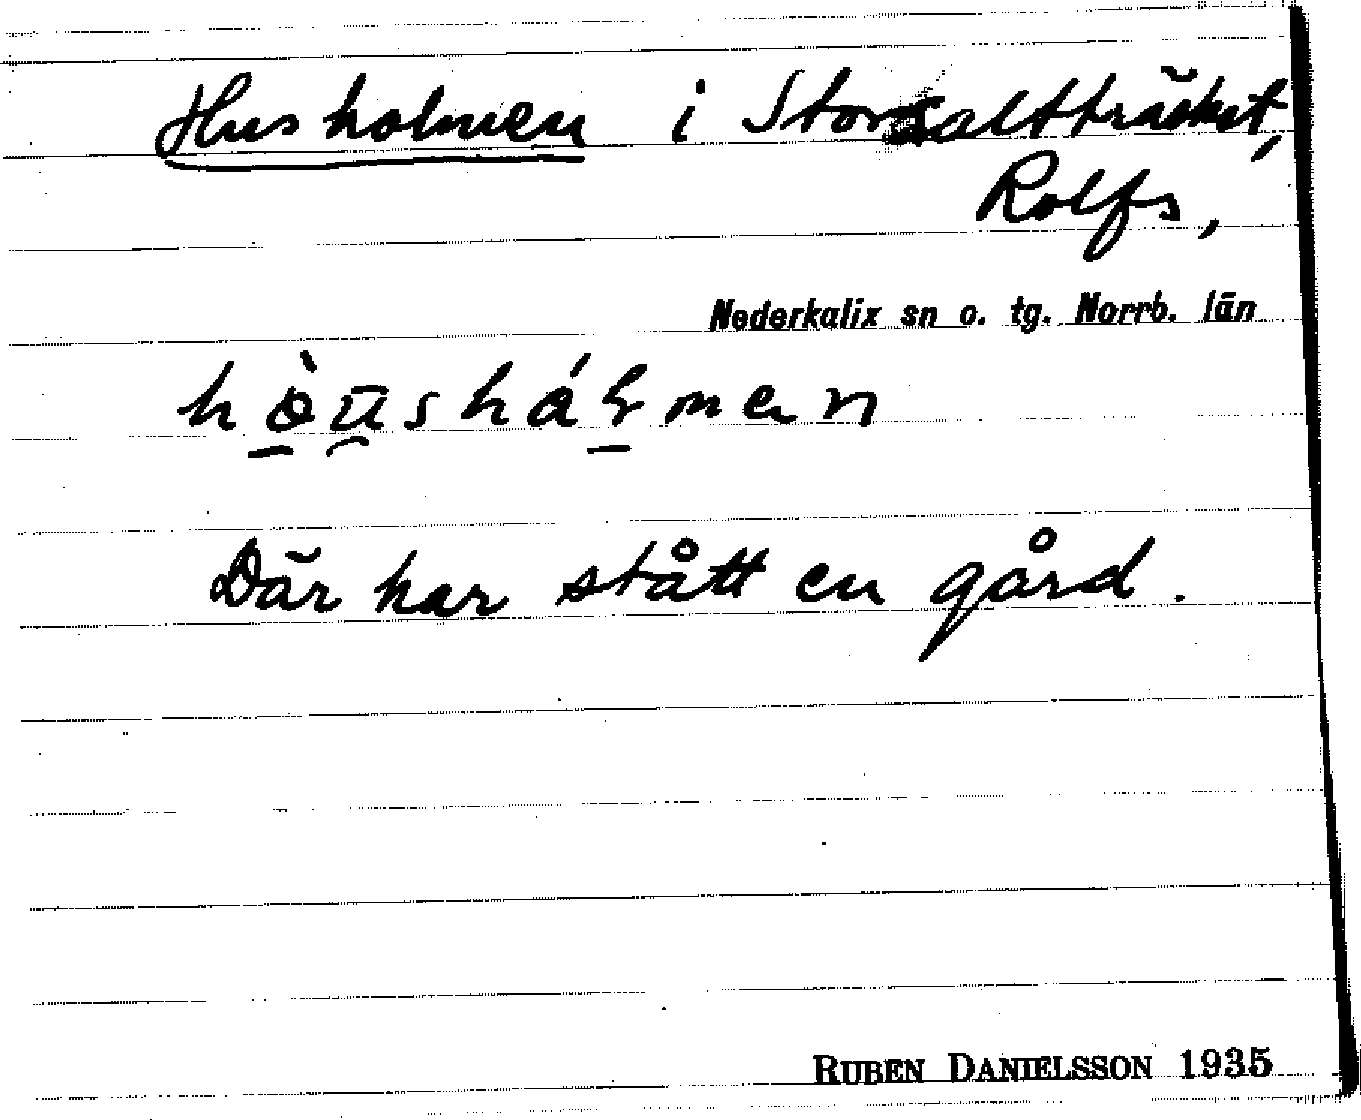 Husholmen i Storsaltträsket,
Rolfs,
Nederkalix sn o. tg. Norrb. län
Där har stått en gård.
RUBEN DANIELSSON 1935